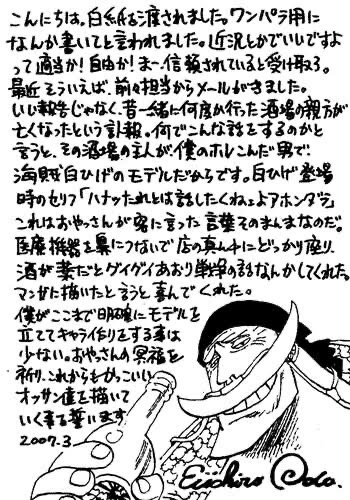 こんにちは。白紙を渡されました。ワンパラ用に
なんか書いてと言われました。近況とかでいいですよ
って適当か！自由か！まー信頼されていると受け取ろう。
最近そういえば、前々担当からメールがきました。
いい報告じゃなく、昔一緒に何度か行った酒場の親方が
亡くなったという訃報。何でこんな話をするのかと
言うと、その酒場の主人が、僕のホレこんだ男で、
海賊白ひげのモデルだからです。白ひげ登場
時のセリフ「ハナッたれとは話したくねェよアホンダラ」
これはおやっさんが客に言った言葉そのまんまなのだ。
医療機器を鼻につないで店の真ん中にどっかり座り、
酒が薬だとグイグイあおり戦争の話なんかしてくれた。
マンガに描いたと言うと喜んでくれた。
僕がここまで明確にモデルを
立ててキャラ作りをする事は
少ない。おやっさんの冥福を
祈り、これからもかっこいい
オッサン達を描いて
いく事を誓います。
2007.3.
Eiichiro Oda.